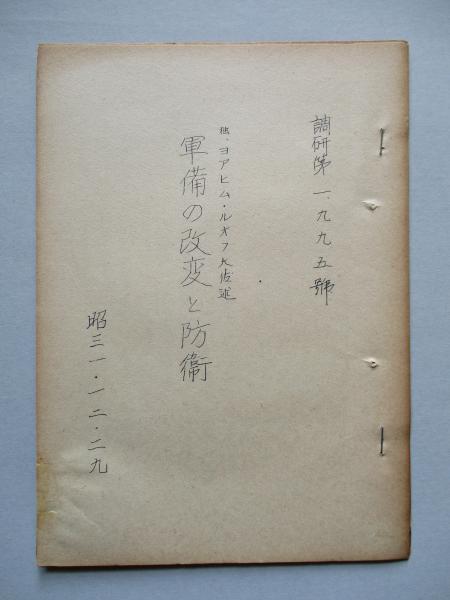 調研第一、九九五號
独、ヨアヒム・ルオフ大佐述
軍備の改変と防衛
昭三一・一二・二九